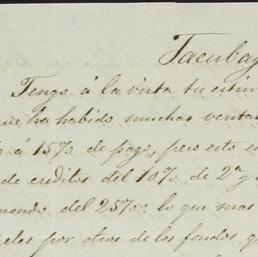 Tacubay
Tengo á la vista tu estim
que ha habido muchas ventas
á 15% de pago, pero esto e
de creditos del 10% de 2ª y
mando del 25%: lo que mas
por otros de los fondos q